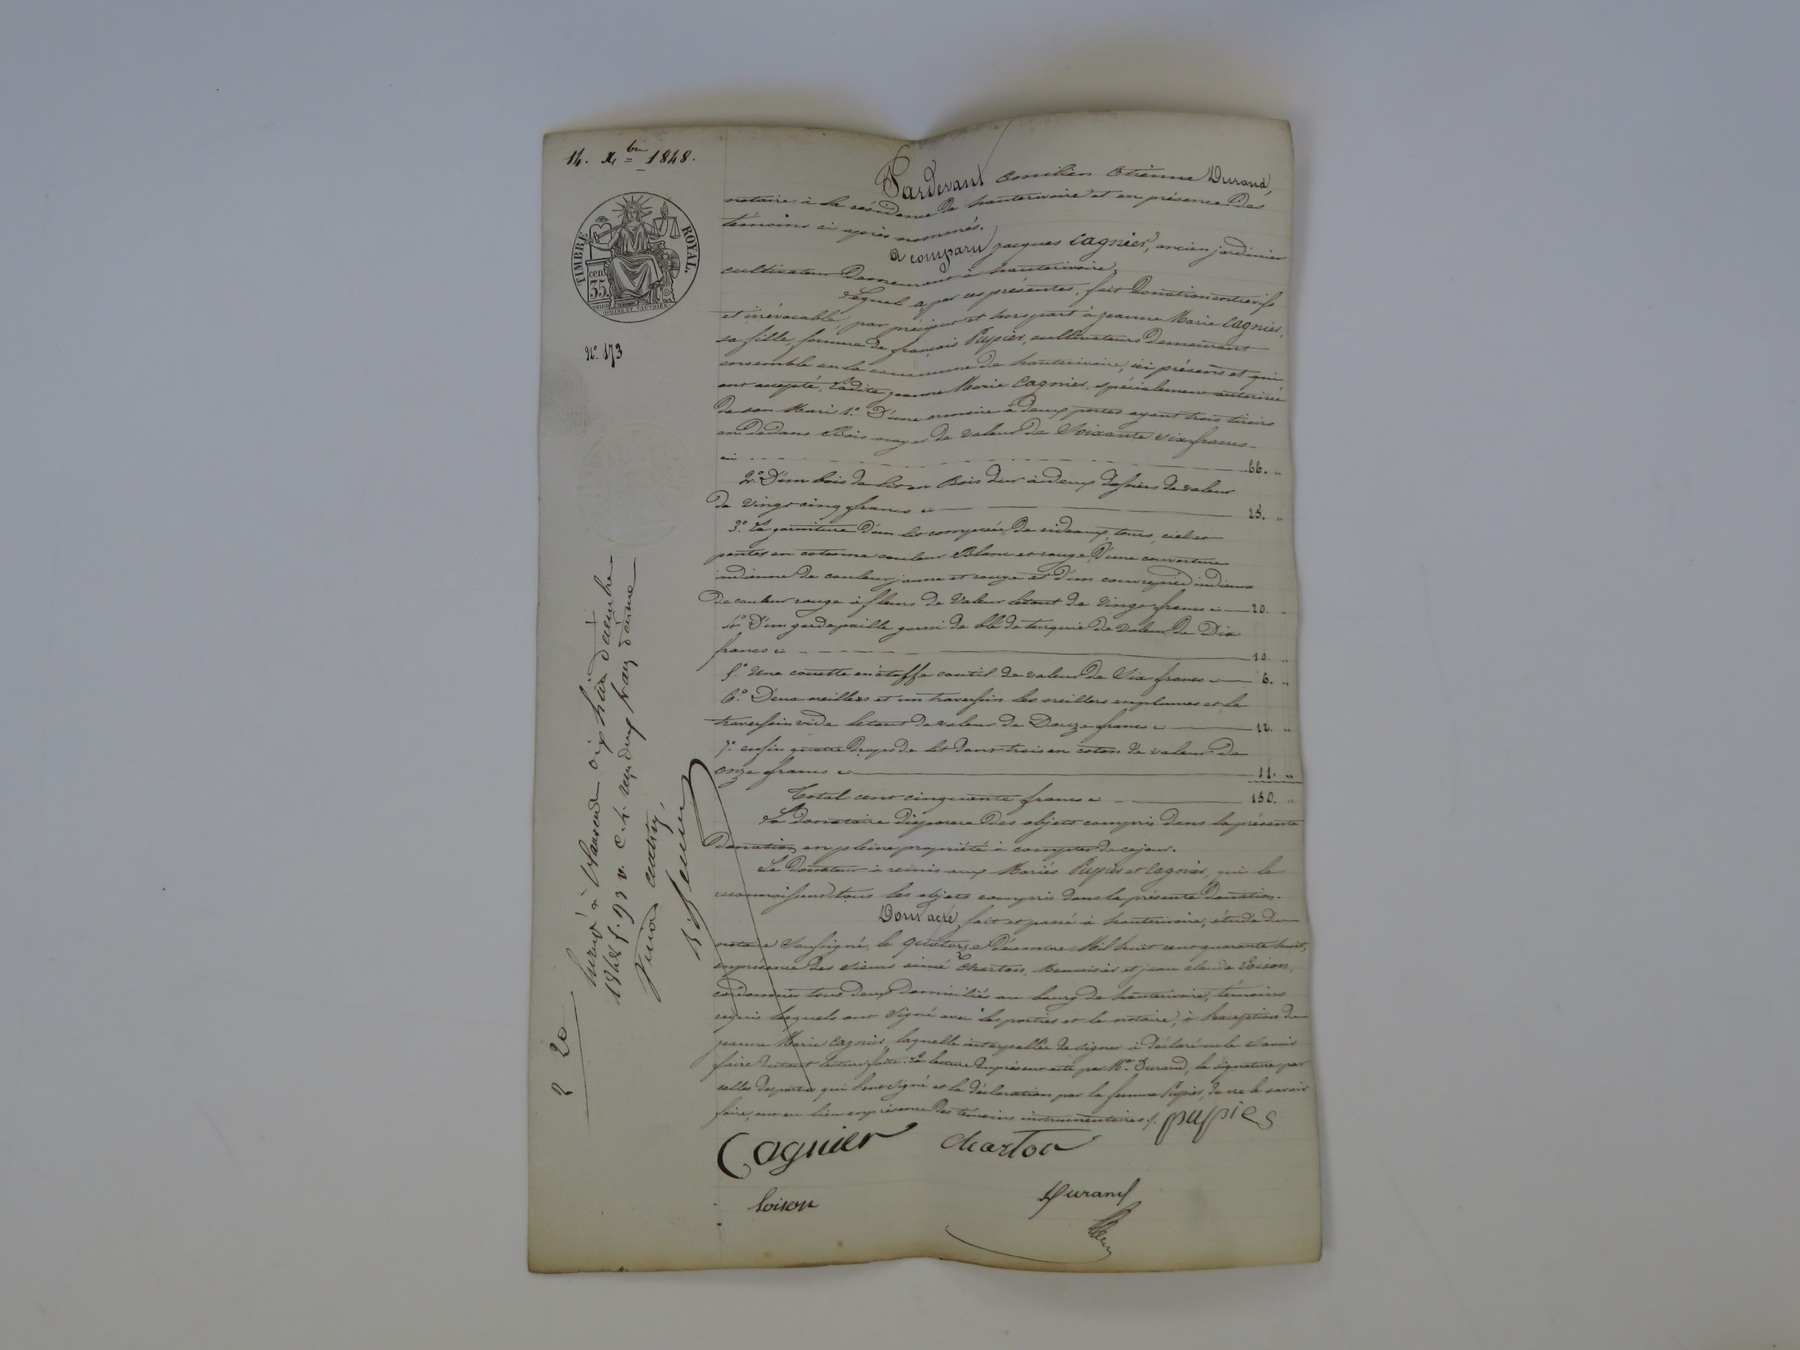 14. Xbre 1848.
TIMBRE ROYAL.
cen. 35.
N° 173
Pardevant Emilien Etienne Durand,
notaire à la résidence de hauterivoire et en présence des
témoins ci après nommés.
a comparu jacques Cagnier, ancien jardinier
cultivateur Demeurant à hauterivoire,
Lequel a par ces présentes, fait Donation entrevifs
et irrévocable, par préciput et hors part à jeanne Marie Cagnier,
sa fille, femme de françois Pupier, cultivateurs demeurant
ensemble en la commune de hauterivoire, ici présens et qui
ont accepté, Ladite jeanne Marie Cagnier, spécialement autorisée
de son Mari 1° D'une armoire à deux portes ayant trois tiroirs
en dedans Bois noyer de valeur de Soixante six francs
ci 66. "
2° D'un bois de lit en Bois dur à deux dossiers de valeur
de vingt cinq francs ci 25. "
3° La garniture d'un lit composée de rideaux, tours, ciel et
pentes en cotonne couleur Blanc et rouge, D'une couverture
indienne de couleur jaune et rouge et d'un couvrepied indienne
de couleur rouge à fleurs de valeur letout de vingt francs ci 20. "
4° D'un gardepaille garni de blé de turquie de valeur de Dix
francs ci 10. "
5° Une couette en étoffe coutil de valeur de Six francs ci 6. "
6° Deux oreillers et un traversin les oreillers emplumés et le
traversin vide letout de valeur de Douze francs ci 12. "
7° enfin quatre draps de lit dont trois en coton de valeur de
onze francs ci 11. "
Total cent cinquante francs ci 150. "
La donataire disposera des objets compris dans la présente
Donation, en pleine propriété à compter de ce jour.
Le Donateur a remis aux Mariés Pupier et Cagnier, qui le
reconnaissent, tous les objets compris dans la présente Donation.
Dont acte, fait et passé à hauterivoire, étude du
notaire Soussigné, le quatorze Décembre Mil huit cent quarante huit,
en présence des sieurs aimé Charton, Menuisier et jean claude Loison,
cordonnier tous deux domiciliés au bourg de hauterivoire, témoins
requis lesquels ont Signé avec les parties et le notaire, à l'exception de
jeanne Marie Cagnier, laquelle interpellée de signer a déclaré ne le savoir
faire du tout lecture faite. La lecture du présent acte par Me Durand, la signature par
celles des parties qui l'ont signé et la déclaration par la femme Pupier, de ne le savoir
faire, ont eu lieu en présence des témoins instrumentaires ./.
pupier
Cagnier charton
loison Durand
1848 f. 93 v. C. 4. reçu deux francs
2 20